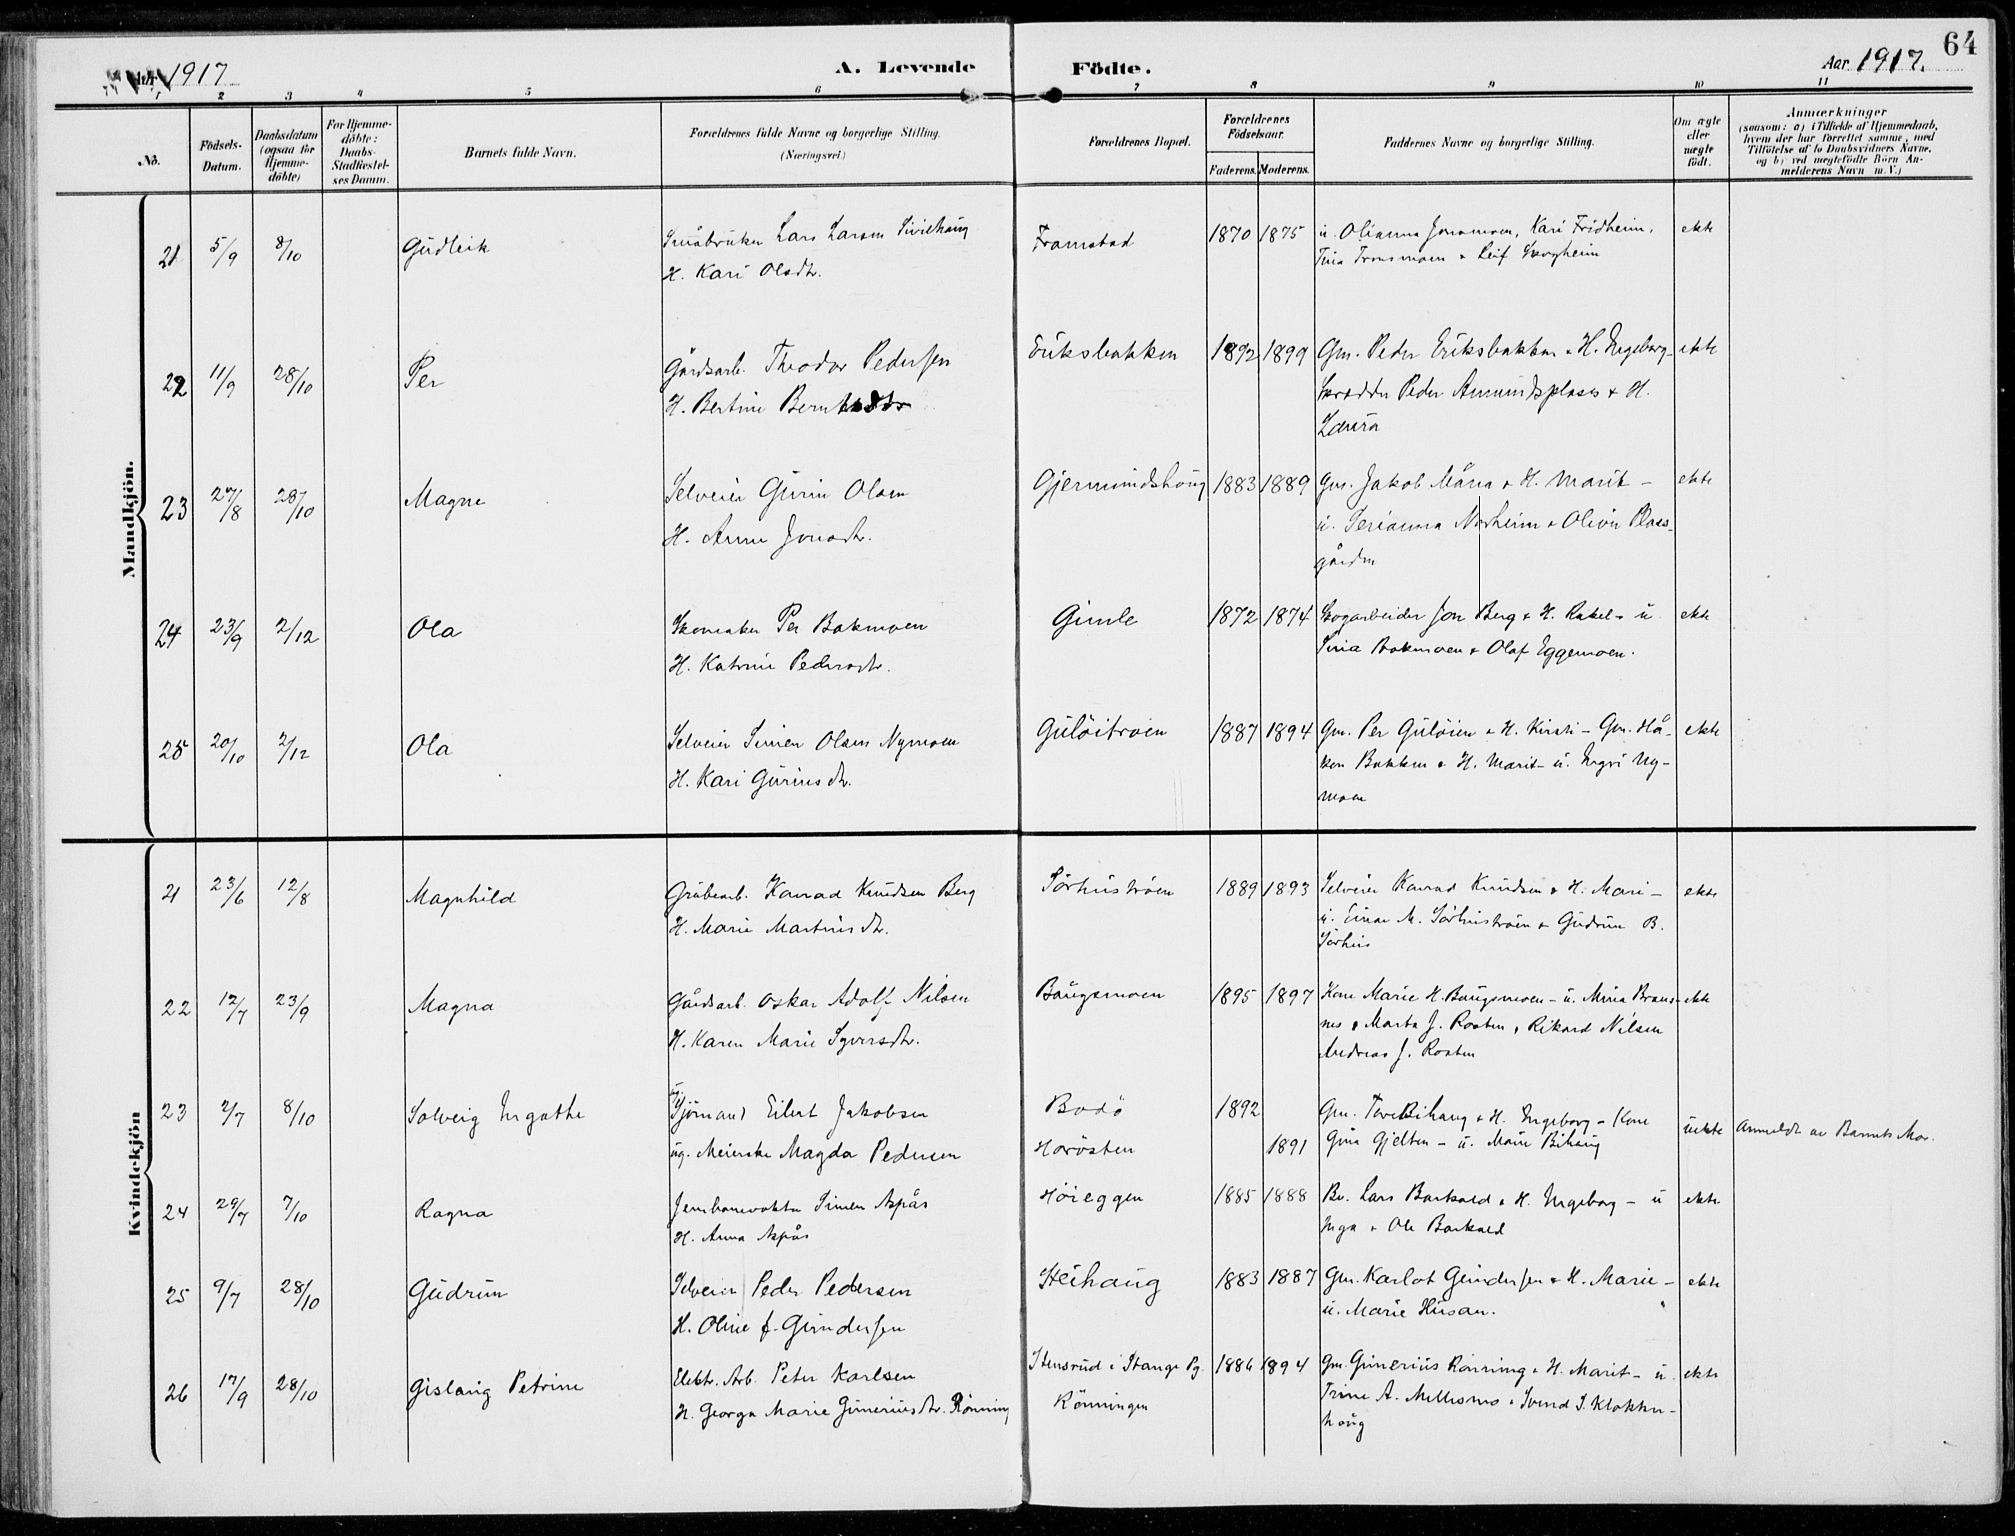 Aar 1917
A. Levende
Födte.
Aar 1917.
64
1 2 3 4 5 6 7 8 9 10 11
No.
Födsels-
Datum.
Daabsdatum
(ogsaa for
Hjemme-
döbte)
For Hjemme-
döbte:
Daabs-
Stadfæstel-
ses Datum.
Barnets fulde Navn.
Forældrenes fulde Navne og borgerlige Stilling.
(Næringsvei.)
Forældrenes Bopæl.
Forældrenes
Födselsaar.
Faderens. Moderens.
Faddernes Navne og borgerlige Stilling.
Om ægte
eller
uægte
födt.
Anmærkninger
(saasom: a) i Tilfælde af Hjemmedaab,
hvem der har forrettet samme, med
Tilföielse af to Daabsvidners Navne,
og b) ved uægtefödte Börn An-
melderens Navn m. V.)
Mandkjön.
21 5/9 8/10 Gudleik
Småbruker Lars Larsen
H. Kari Olsdtr.
Framstad 1870 1875
u. Olianna Jonsmoen, Kari Fridheim,
Tina Tronsmoen & Leif Skogheim
ekte
22 11/9 28/10 Per
Gårdsarb. Theodor Pedersen
H. Bertine
Eriksbakken 1892 1899
Gm. Peder Eriksbakken & H. Ingeborg -
Skrædder Peder Amundsplass & H.
Laura
ekte
23 27/8 28/10 Magne
Selveier Gurin Olsen
H. Anne Jonsdtr.
Gjermundshoug 1883 1889
Gm. Jakob Måna & H. Marit -
u. Serianna Norheim & Oliver Plass-
gården
ekte
24 23/9 2/12 Ola
Skomaker Per Bakmoen
H. Katrine Pedersdtr.
Gimle 1872 1874
Skogarbeider Jon Berg & H. Rakel - u.
Sina Bakmoen & Olaf Eggemoen.
ekte
25 20/10 2/12 Ola
Selveier Simen Olsen Nymoen
H. Kari Gurinsdtr.
Gulöitroen 1887 1894
Gm. Per Gulöien & H. Kirsti - Gm. Hå-
kon Bakken & H. Marit - u. Ingri Ny-
moen
ekte
Kvindekjön
21 23/6 12/8 Magnhild
Grubearb. Konrad Knudsen Berg
H. Marie Martinsdtr.
Sörhuströen 1889 1893
Selveier Konrad Knudsen & H. Mari -
u. Einar M. Sörhuströen & Gudrun B.
Sörhus
ekte
22 12/7 23/9 Magna
Gårdsarb. Oskar Adolf Nilsen
H. Karen Marie Syversdtr.
Baugsmoen 1895 1897
Kone Marie H. Baugsmoen - u. Mina Brans-
nes & Marta J. Rosten, Rikard Nilsen
Andreas J. Rosten
ekte
23 2/7 8/10 Solveig Ingathe
ug. Sjömand Eilert Jakobsen
ug. Meierske Magda Pedersen
Bodö 1892
Horösten 1891
Gm. Tore Bihaug & H. Ingeborg - Kone
Gina Gjelten - u. Marie Bihaug
uekte
Anmeldt av Barnets Mor.
24 29/7 7/10 Ragna
Jernbanevokter Simen Aspås
H. Anna Aspås
Höieggen 1885 1888
Bv. Lars Barkald & H. Ingeborg - u
Inga & Ole Barkald
ekte
25 9/7 28/10 Gudrun
Selveier Peder Pedersen
H. Oline f. Gundersen
Steihaug 1883 1887
Gm. Karlot Gundersen & H. Marie -
u. Marie Husan.
ekte
26 17/9 28/10 Gislaug Petrine
Elektr. Arb. Peter Karlsen
H. Georga Marie Gunneriusdtr. Rönning
Stensrud i Stange Pg.
Rönningen
1886 1894
Gm. Gunerius Rönning & H. Marit - u.
Trine A. Mellesmo & Svend S. Klokker-
houg
ekte